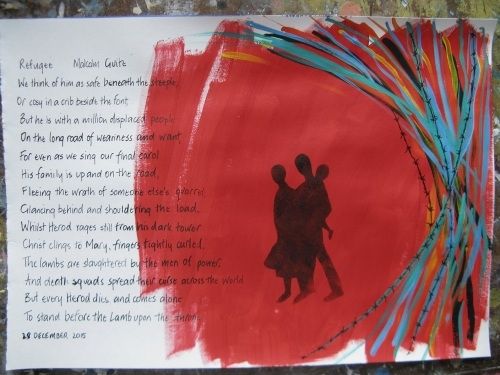 Refugee Malcolm Guite
We think of him as safe beneath the steeple,
Or cosy in a crib beside the font
But he is with a million displaced people
On the long road of weariness and want
For even as we sing our final carol
His family is up and on the road,
Fleeing the wrath of someone else's quarrel
Glancing behind and shouldering the load.
Whilst Herod rages still from his dark tower
Christ clings to Mary, fingers tightly curled,
The lambs are slaughtered by the men of power,
And death squads spread their curse across the world
But every Herod dies, and comes alone
To stand before the Lamb upon the throne
28 DECEMBER 2015